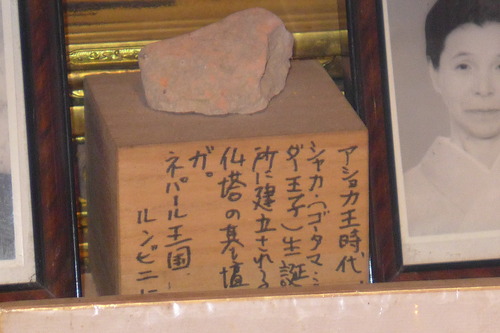 アショカ王時代、
シャカ・(ゴータマ・シ
ダー王子)生誕
所に建立される
仏塔の基壇
ガ。
ネパール王国、
ルンビニに